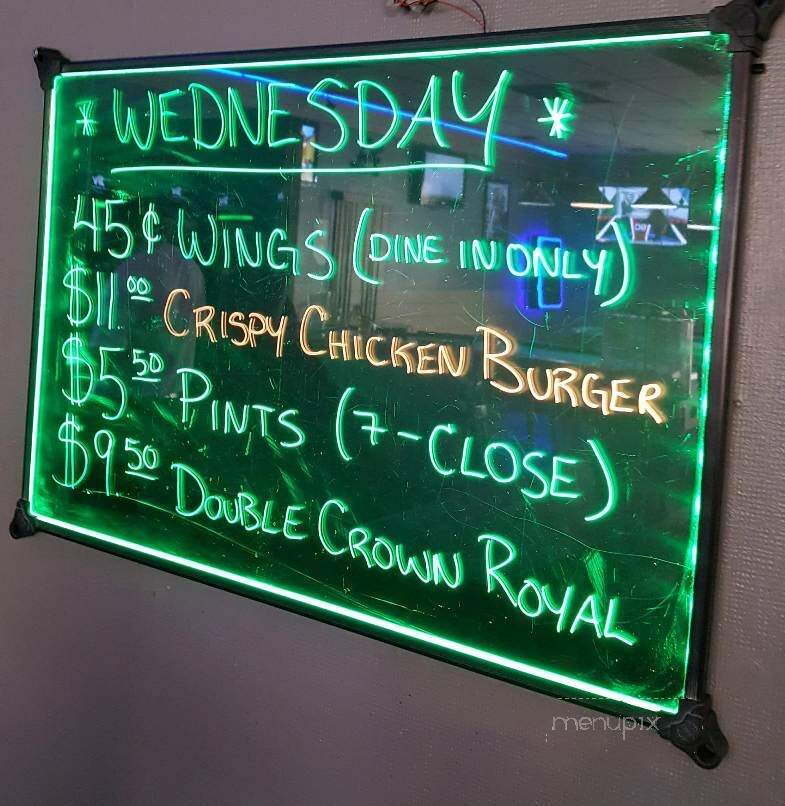 * WEDNESDAY *
45¢ WINGS (DINE IN ONLY)
$11.00 CRISPY CHICKEN BURGER
$5.50 PINTS (7-CLOSE)
$9.50 DOUBLE CROWN ROYAL
menupix